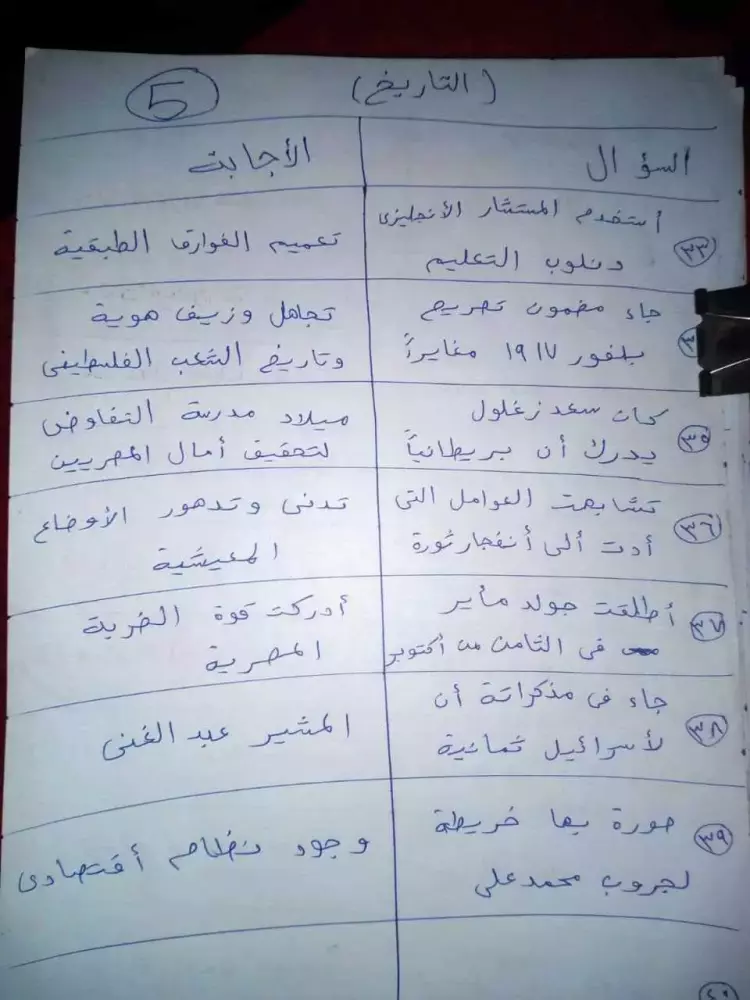 (التاريخ)
5
السؤال
الأجابة
٣٣
أستخدم المستشار الأنجليزى
دنلوب التعليم
تعميم الفوارق الطبقية
جاء مضمون تصريح
بلفور ١٩١٧ مغايراً
تجاهل وزيف هوية
وتاريخ الشعب الفلسطينى
٣٥
كان سعد زغلول
يدرك أن بريطانياً
ميلاد مدرسة التفاوض
لتحقيق أمال المصريين
٣٦
تشابهت العوامل التى
أدت ألى أنفجار ثورة
تدنى وتدهور الأوضاع
المعيشية
٣٧
أطلقت جولد مأير
فى الثامن من أكتوبر
أدركت قوة الضربة
المصرية
٣٨
جاء فى مذكراتة أن
لأسرائيل ثمانية
المشير عبد الغنى
٣٩
صورة بها خريطة
لحروب محمد على
وجود نظام أقتصادى